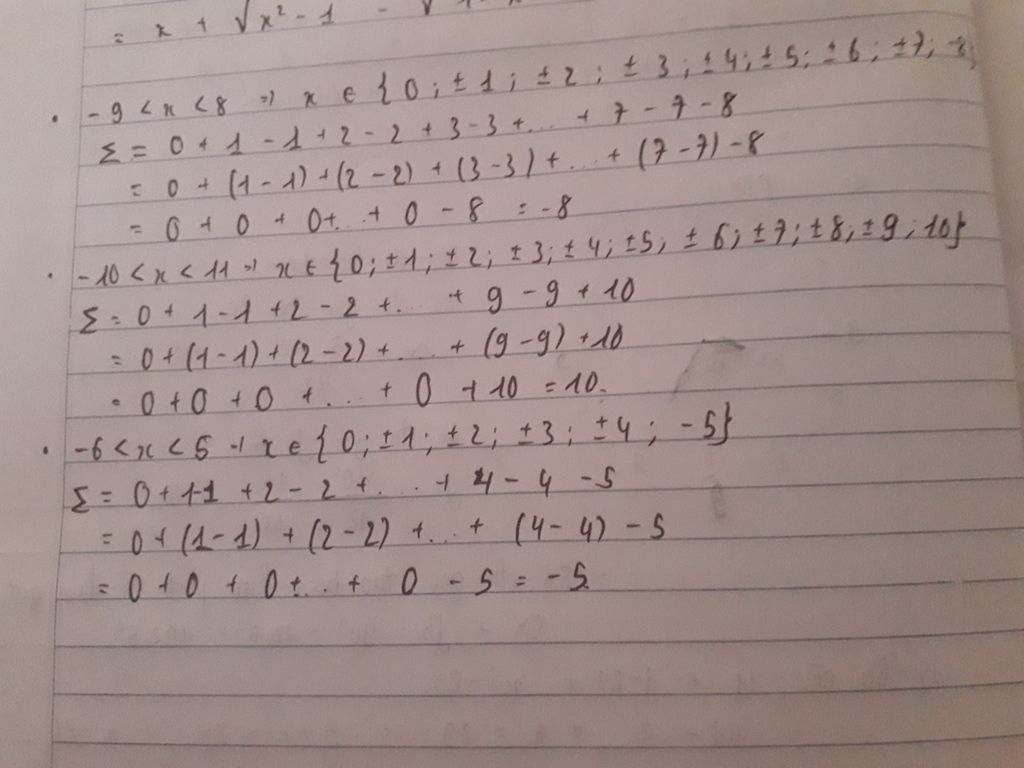 = x + √x² - 1 - √
• -9 < x < 8 => x ∈ {0; ±1; ±2; ±3; ±4; ±5; ±6; ±7; -8}
Σ = 0 + 1 - 1 + 2 - 2 + 3 - 3 + ... + 7 - 7 - 8
= 0 + (1 - 1) + (2 - 2) + (3 - 3) + ... + (7 - 7) - 8
= 0 + 0 + 0 + ... + 0 - 8 = -8
• -10 < x < 11 => x ∈ {0; ±1; ±2; ±3; ±4; ±5; ±6; ±7; ±8; ±9; 10}
Σ = 0 + 1 - 1 + 2 - 2 + ... + 9 - 9 + 10
= 0 + (1 - 1) + (2 - 2) + ... + (9 - 9) + 10
= 0 + 0 + 0 + ... + 0 + 10 = 10.
• -6 < x < 5 => x ∈ {0; ±1; ±2; ±3; ±4; -5}
Σ = 0 + 1-1 + 2 - 2 + ... + 4 - 4 - 5
= 0 + (1 - 1) + (2 - 2) + ... + (4 - 4) - 5
= 0 + 0 + 0 + ... + 0 - 5 = -5.